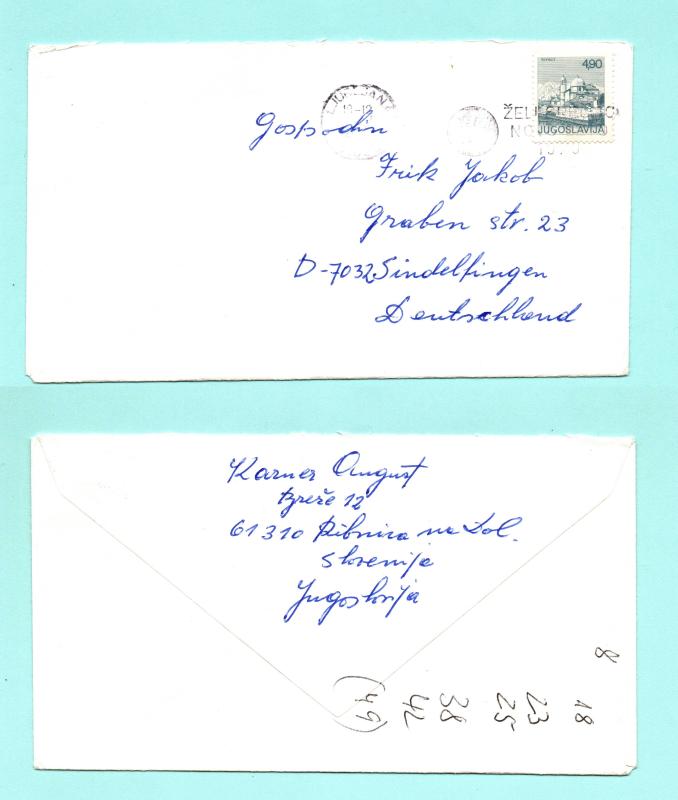 4,90
LJUBLJANA
ŽELI
JUGOSLAVIJA
Gospodin
Frik Jakob
Graben str. 23
D-7032 Sindelfingen
Deutschland
Karner August
Breže 12
61310 Ribnica na Dol.
Slovenija
Jugoslovija
8
18
23
25
38
42
(49)